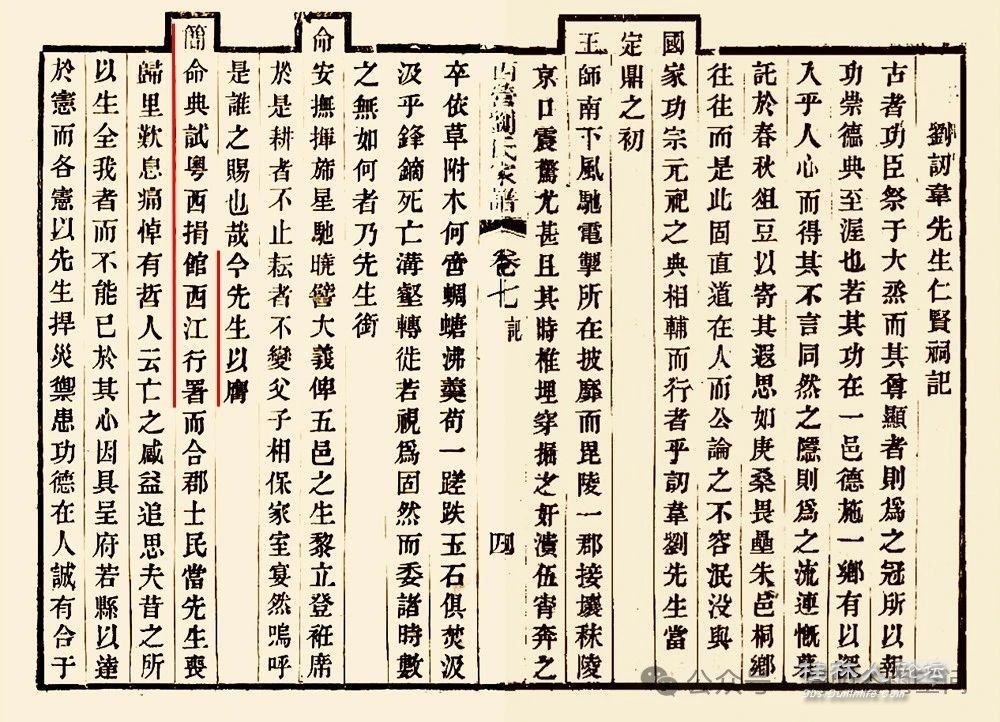 劉訒韋先生仁賢祠記
古者功臣祭于大烝而其尊顯者則爲之冠所以報
功崇德典至渥也若其功在一邑德施一鄉有以深
入乎人心而得其不言同然之隱則爲之流連慨慕
託於春秋俎豆以寄其遐思如庚桑畏壘朱邑桐鄉
往往而是此固直道在人而公論之不容泯没與
國家功宗元祀之典相輔而行者乎訒韋劉先生當
定鼎之初
王師南下風馳電掣所在披靡而毘陵一郡接壤秣陵
京口震驚尤甚且其時椎埋穿掘之奸潰伍宵奔之
西營劉氏家譜 卷七 記 四
卒依草附木何啻蜩螗沸羹荀一蹉跌玉石俱焚汲
汲乎鋒鏑死亡溝壑轉徙若視爲固然而委諸時數
之無如何者乃先生銜
命
安撫揮旆星馳曉譬大義俾五邑之生黎立登袵席
於是耕者不止耘者不變父子相保家室宴然嗚呼
是誰之賜也哉今先生以膺
簡命典試粵西捐館西江行署而合郡士民當先生喪
歸里歎息痛悼有哲人云亡之感益追思夫昔之所
以生全我者而不能已於其心因具呈府若縣以達
於憲而各憲以先生捍災禦患功德在人誠有合于
公众号
桂林人论坛
bbs.guilinlife.com